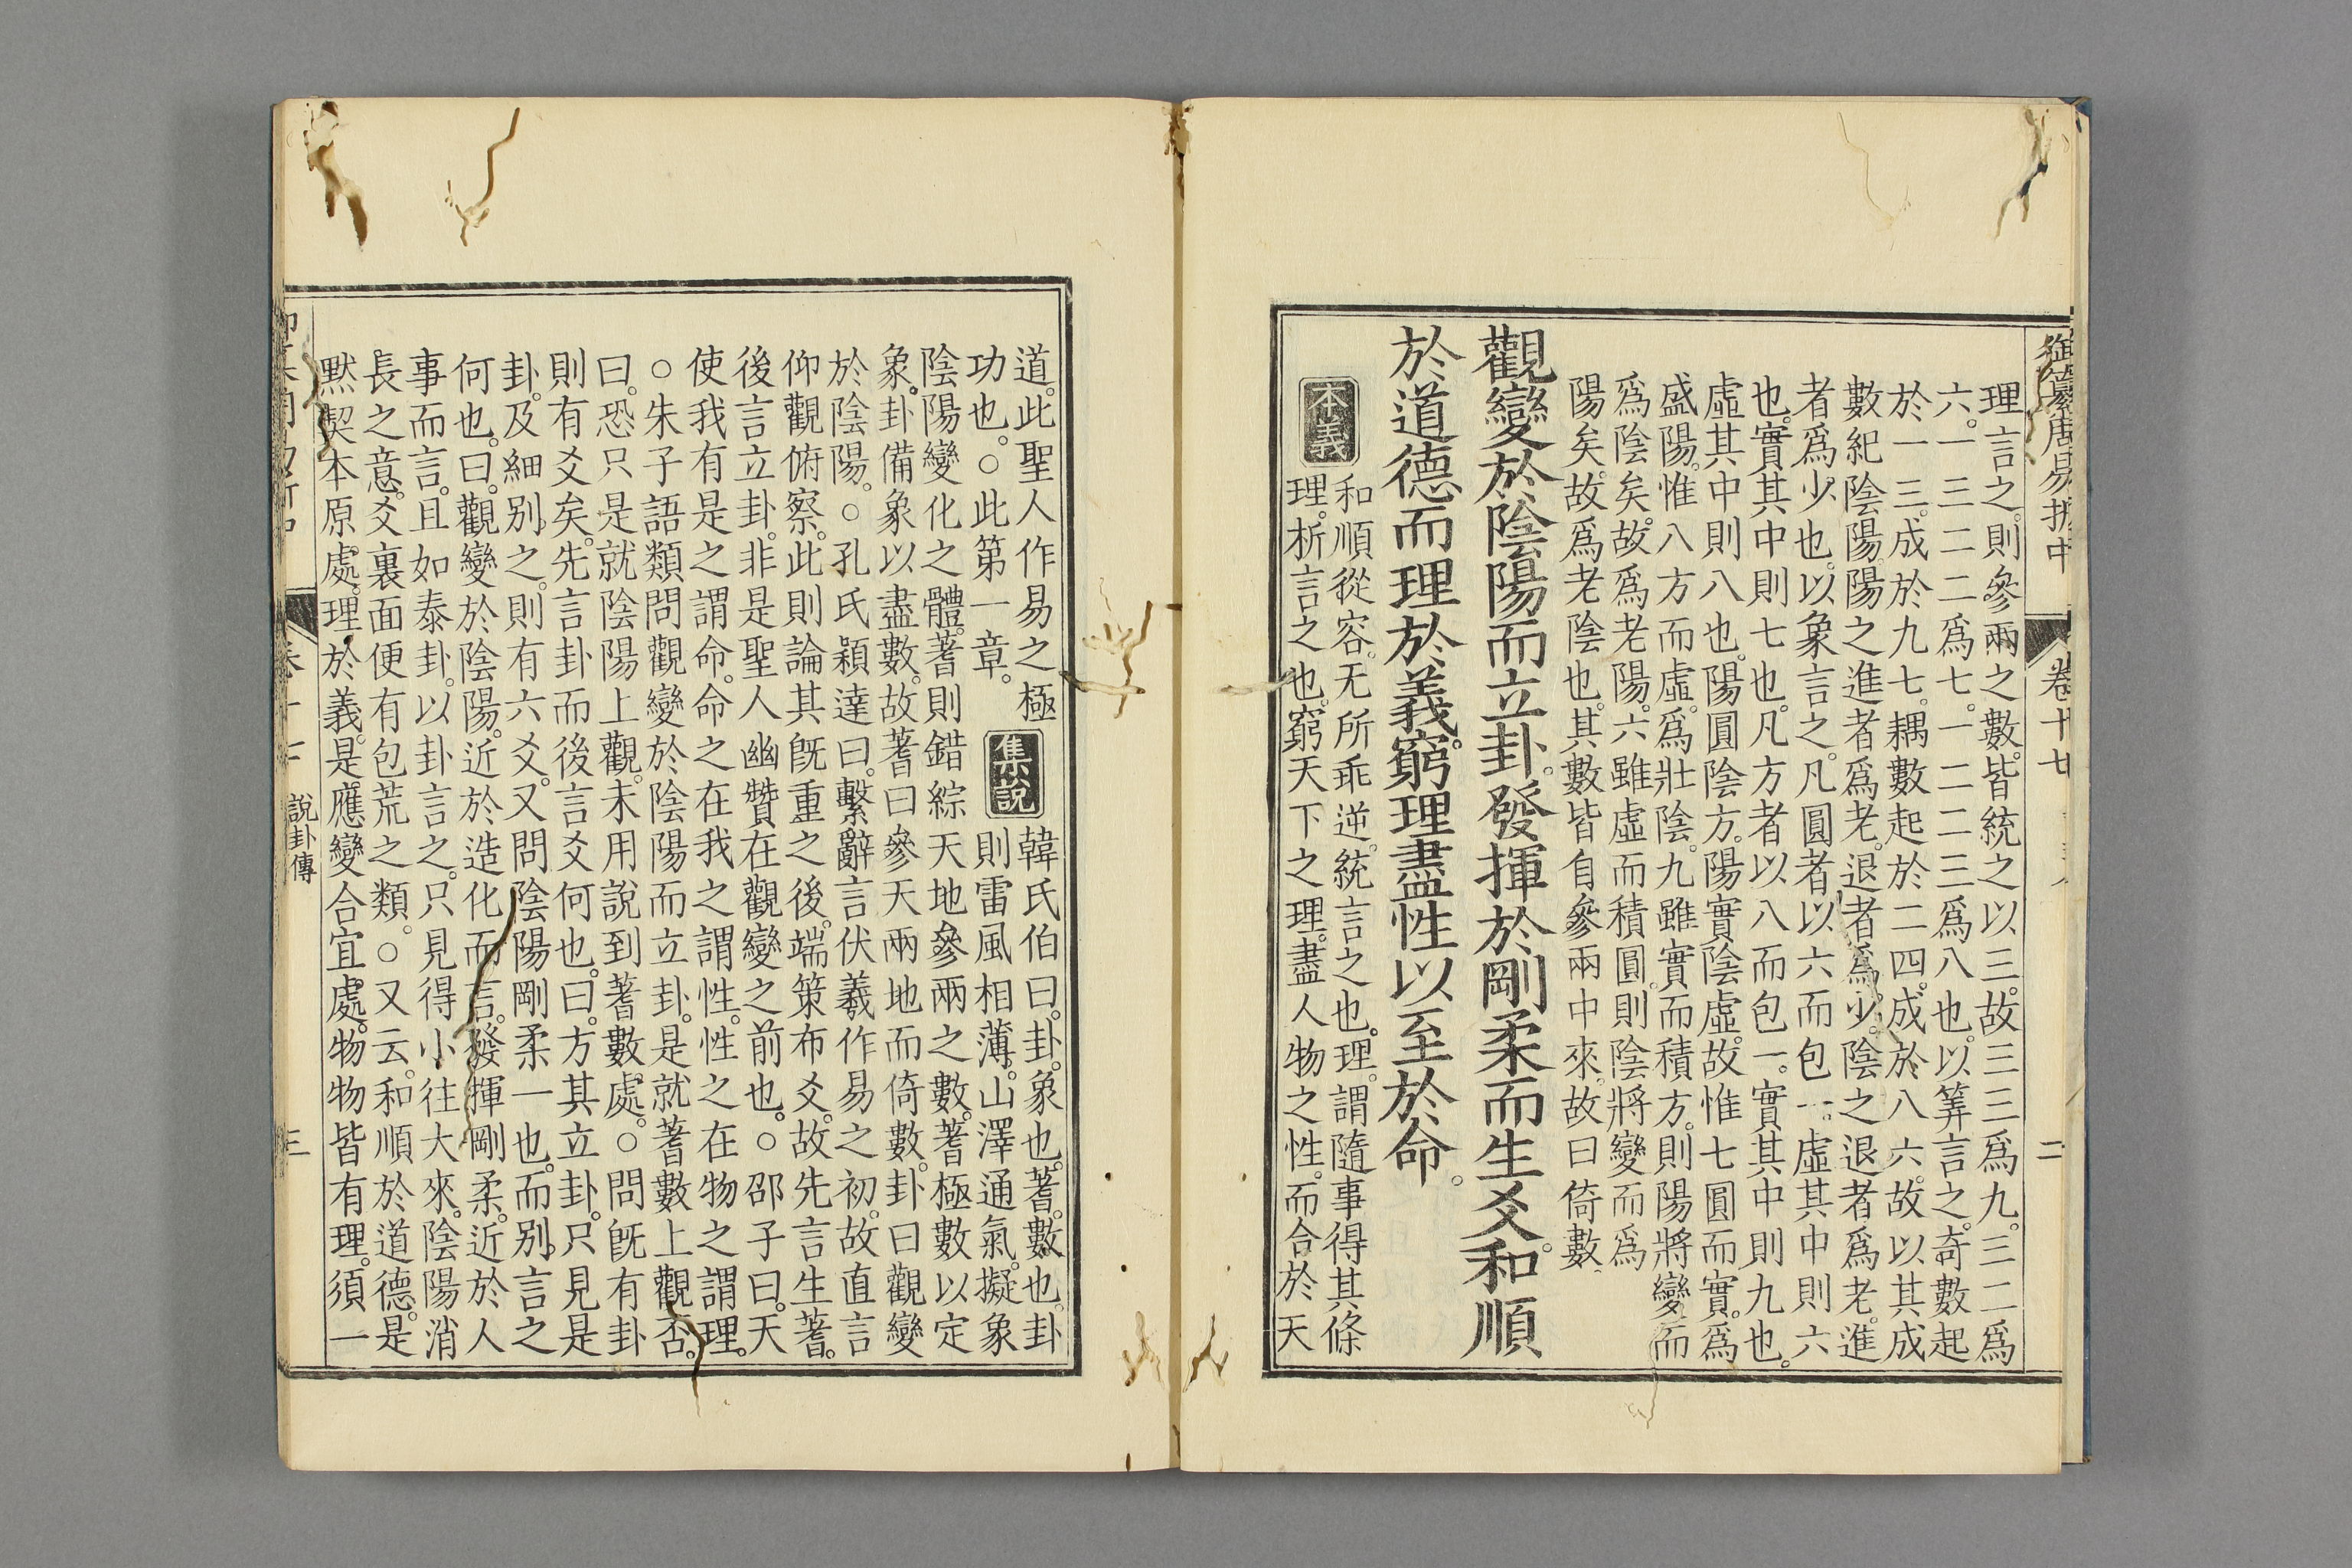 御纂周易折中 卷十七 二
理言之。則參兩之數。皆統之以三。故三三爲九。三二爲
六。一三二二爲七。一二二三爲八也。以筭言之。奇數起
於一三。成於九七。耦數起於二四。成於八六。故以其成
數紀陰陽。陽之進者爲老。退者爲少。陰之退者爲老。進
者爲少也。以象言之。凡圓者以六而包一。虛其中則六
也。實其中則七也。凡方者以八而包一。實其中則九也。
虛其中則八也。陽圓陰方。陽實陰虛。故惟七圓而實。爲
盛陽。惟八方而虛。爲壯陰。九雖實而積方。則陽將變而
爲陰矣。故爲老陽。六雖虛而積圓。則陰將變而爲
陽矣。故爲老陰也。其數皆自參兩中來。故曰倚數
觀變於陰陽而立卦。發揮於剛柔而生爻。和順
於道德而理於義。窮理盡性以至於命。
本義
和順從容。无所乖逆。統言之也。理。謂隨事得其條
理。析言之也。窮天下之理。盡人物之性。而合於天
道。此聖人作易之極
功也。○此第一章。
集說
韓氏伯曰。卦。象也。蓍。數也。卦
則雷風相薄。山澤通氣。擬象
陰陽變化之體。蓍則錯綜天地參兩之數。蓍極數以定
象。卦備象以盡數。故蓍曰參天兩地而倚數。卦曰觀變
於陰陽。○孔氏穎達曰。繫辭言伏羲作易之初。故直言
仰觀俯察。此則論其旣重之後。端策布爻。故先言生蓍。
後言立卦。非是聖人幽贊在觀變之前也。○邵子曰。天
使我有是之謂命。命之在我之謂性。性之在物之謂理。
○朱子語類問觀變於陰陽而立卦。是就蓍數上觀否。
曰。恐只是就陰陽上觀。未用說到蓍數處。○問旣有卦
則有爻矣。先言卦而後言爻何也。曰。方其立卦。只見是
卦。及細别之。則有六爻。又問陰陽剛柔一也。而別言之
何也。曰。觀變於陰陽。近於造化而言。發揮剛柔。近於人
事而言。且如泰卦。以卦言之。只見得小往大來。陰陽消
長之意。爻裏面便有包荒之類。○又云。和順於道德。是
默契本原處。理於義。是應變合宜處。物物皆有理。須一
說卦傳 三